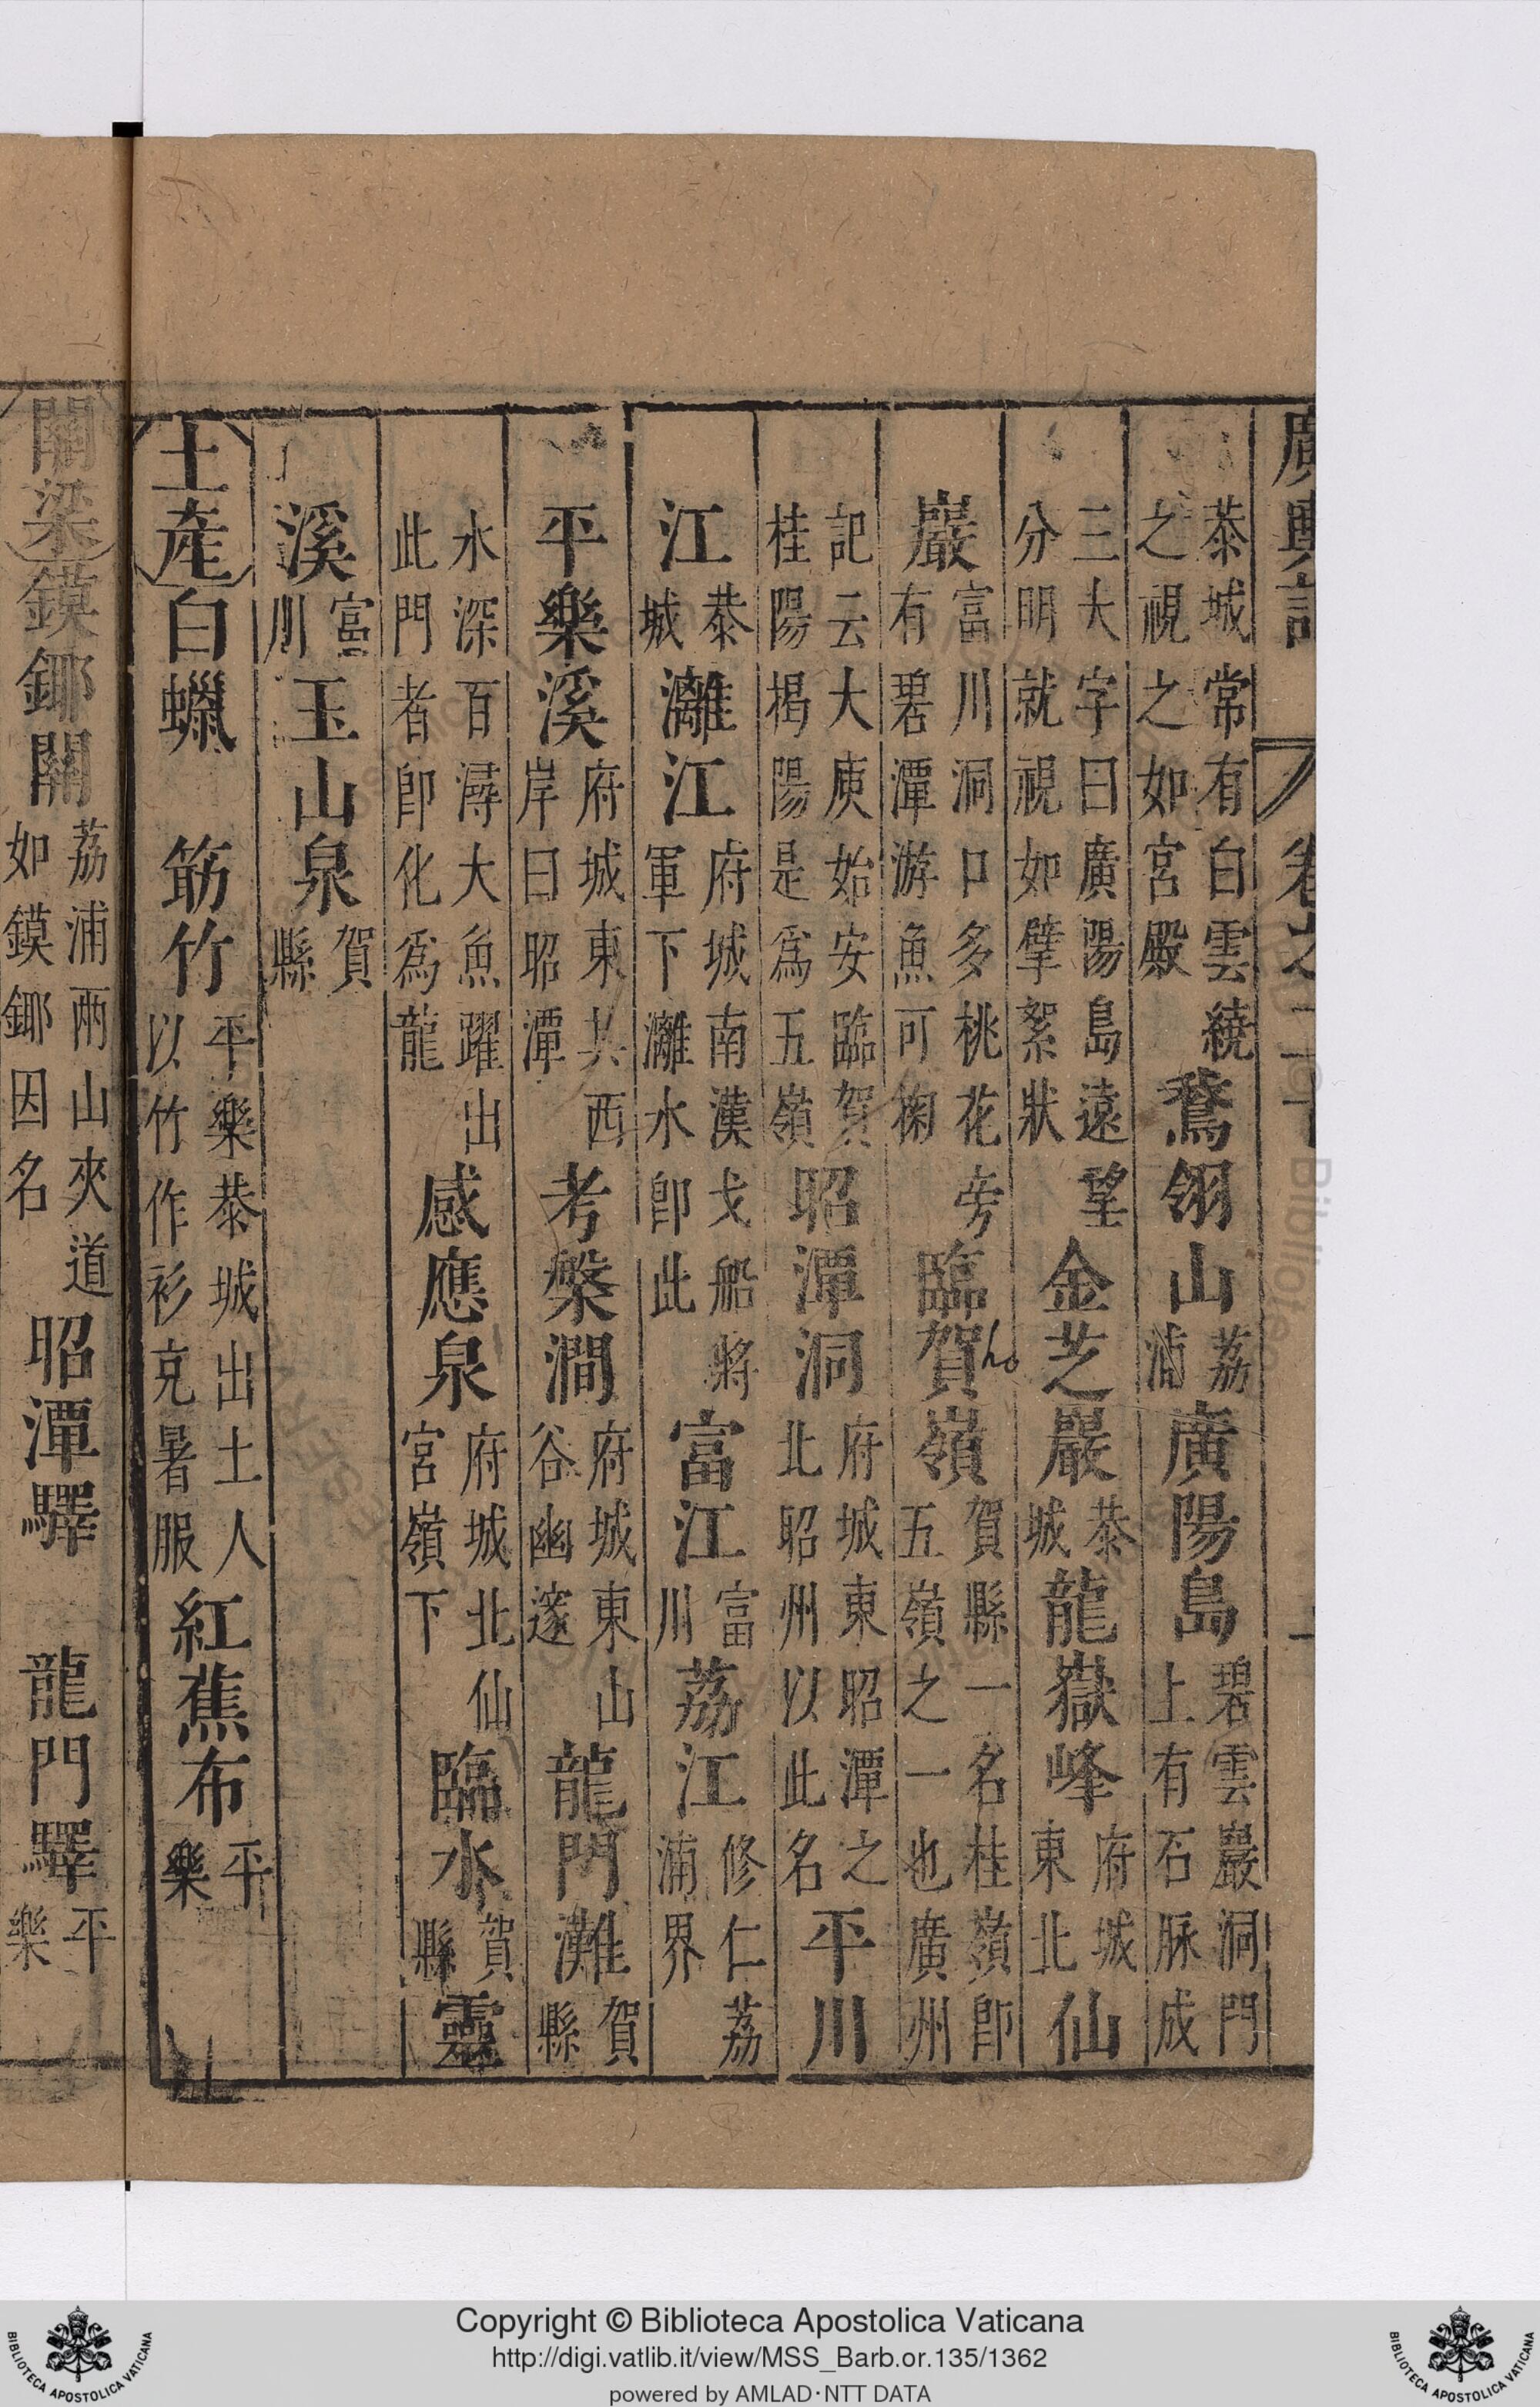 廣輿記 卷之二十
恭城常有白雲繞之視之如宮殿 鵞翎山 荔浦 廣陽島 碧雲巖洞門上有石脉成
三大字曰廣陽島遠望分明就視如擘絮狀 金芝巖 恭城 龍嶽峰 府城東北 仙
巖 富川洞口多桃花旁有碧潭游魚可掬 臨賀嶺 賀縣一名桂嶺卽五嶺之一也廣州
ho
記云大庾始安臨賀桂陽揭陽是爲五嶺 昭潭洞 府城東昭潭之北昭州以此名 平川
江 恭城 灕江 府城南漢戈船將軍下灕水卽此 富江 富川 荔江 修仁荔浦界
平樂溪 府城東共西岸曰昭潭 考槃澗 府城東山谷幽邃 龍門灘 賀縣
水深百潯大魚躍出此門者卽化爲龍 感應泉 府城北仙宮嶺下 臨水 賀縣 靈
溪 富川 玉山泉 賀縣
土產 白蠟 筯竹 平樂恭城出土人以竹作衫克暑服 紅蕉布 平樂
關梁 鏌鎁關 荔浦兩山夾道如鏌鎁因名 昭潭驛 龍門驛 平樂
Copyright © Biblioteca Apostolica Vaticana
http://digi.vatlib.it/view/MSS_Barb.or.135/1362
powered by AMLAD·NTT DATA
BIBLIOTECA APOSTOLICA VATICANA
BIBLIOTECA APOSTOLICA VATICANA